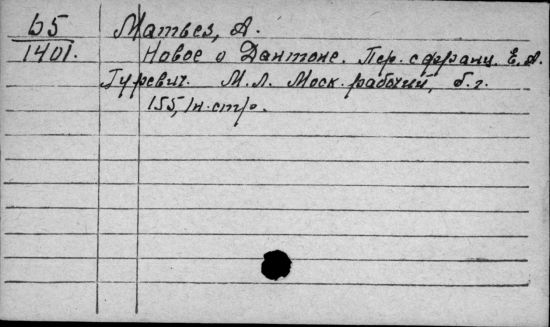 Б5
1401.
Матьез, А.
Новое о Дантоне. Пер. с франц. Е. А.
Гуревич. М. Л. Моск. рабочий, б. г.
155, 1н. стр.